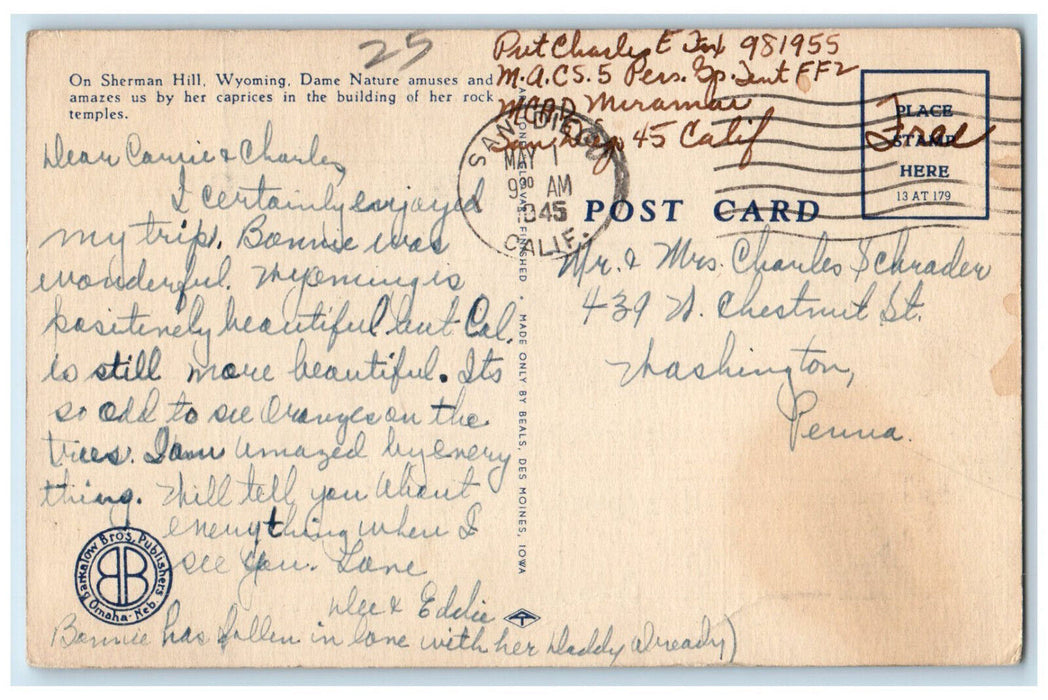 25
Pvt Charles E Fox 981955
M.A.C.S. 5 Pers. Gp. Tent FF2
MCAD Miramar
San Diego 45 Calif
Free
On Sherman Hill, Wyoming, Dame Nature amuses and
amazes us by her caprices in the building of her rock
temples.
SAN DIEGO
MAY 1
9 30 AM
1945
CALIF.
PLACE
STAMP
HERE
13 AT 179
POST CARD
Dear Carrie & Charley,
I certainly enjoyed
my trip. Bonnie was
wonderful. Wyoming is
positively beautiful but Cal.
is still more beautiful. Its
so odd to see Oranges on the
trees. I am amazed by every
thing. Will tell you about
everything when I
see you. Love
Dee & Eddie
Bonnie has fallen in love with her Daddy already)
Mr. & Mrs. Charles Schrader
439 W. Chestnut St.
Washington,
Penna.
FINISHED • MADE ONLY BY BEALS, DES MOINES, IOWA
Barkalow Bro's, Publishers
BB
Omaha-Neb.